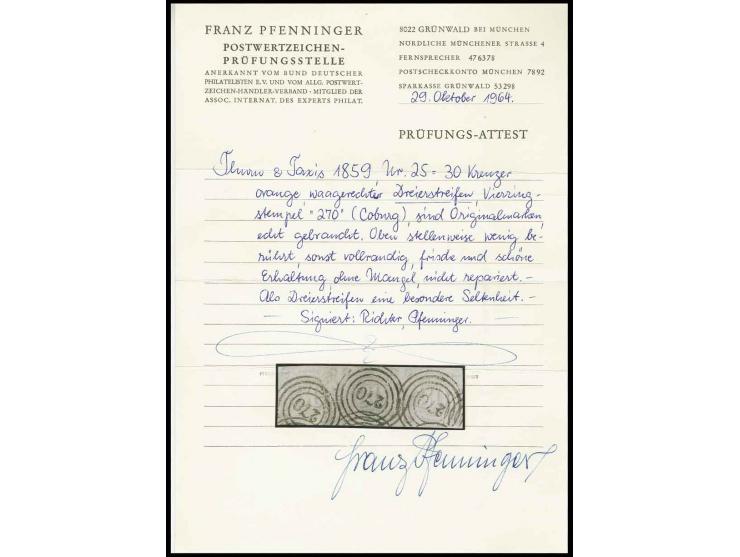 FRANZ PFENNINGER
POSTWERTZEICHEN-
PRÜFUNGSSTELLE
ANERKANNT VOM BUND DEUTSCHER
PHILATELISTEN E.V. UND VOM ALLG. POSTWERT-
ZEICHEN-HÄNDLER-VERBAND · MITGLIED DER
ASSOC. INTERNAT. DES EXPERTS PHILAT.
8022 GRÜNWALD BEI MÜNCHEN
NÖRDLICHE MÜNCHENER STRASSE 4
FERNSPRECHER 476378
POSTSCHECKKONTO MÜNCHEN 7892
SPARKASSE GRÜNWALD 53298
29. Oktober 1964.
PRÜFUNGS-ATTEST
Thurn & Taxis 1859, Nr. 25 = 30 Kreuzer
orange, waagerechter Dreierstreifen, Vierring-
stempel "270" (Coburg), sind Originalmarken,
echt gebraucht. Oben stellenweise wenig be-
rührt, sonst vollrandig, frische und schöne
Erhaltung, ohne Mängel, nicht repariert. –
Als Dreierstreifen eine besondere Seltenheit. –
Signiert: Richter, Pfenninger.
270 270 270
Franz Pfenninger